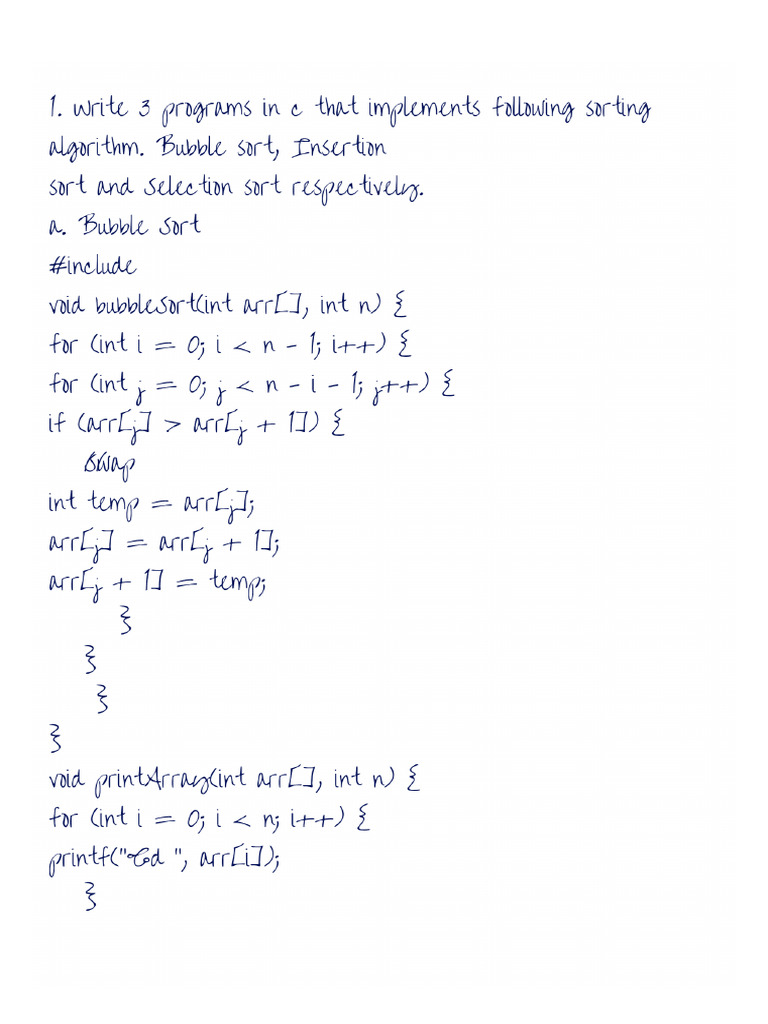 1. Write 3 programs in c that implements following sorting
algorithm. Bubble sort, Insertion
sort and Selection sort respectively.
a. Bubble Sort
#include
void bubbleSort(int arr[], int n) {
for (int i = 0; i < n - 1; i++) {
for (int j = 0; j < n - i - 1; j++) {
if (arr[j] > arr[j + 1]) {
Swap
int temp = arr[j];
arr[j] = arr[j + 1];
arr[j + 1] = temp;
}
}
}
}
void printArray(int arr[], int n) {
for (int i = 0; i < n; i++) {
printf("%d ", arr[i]);
}